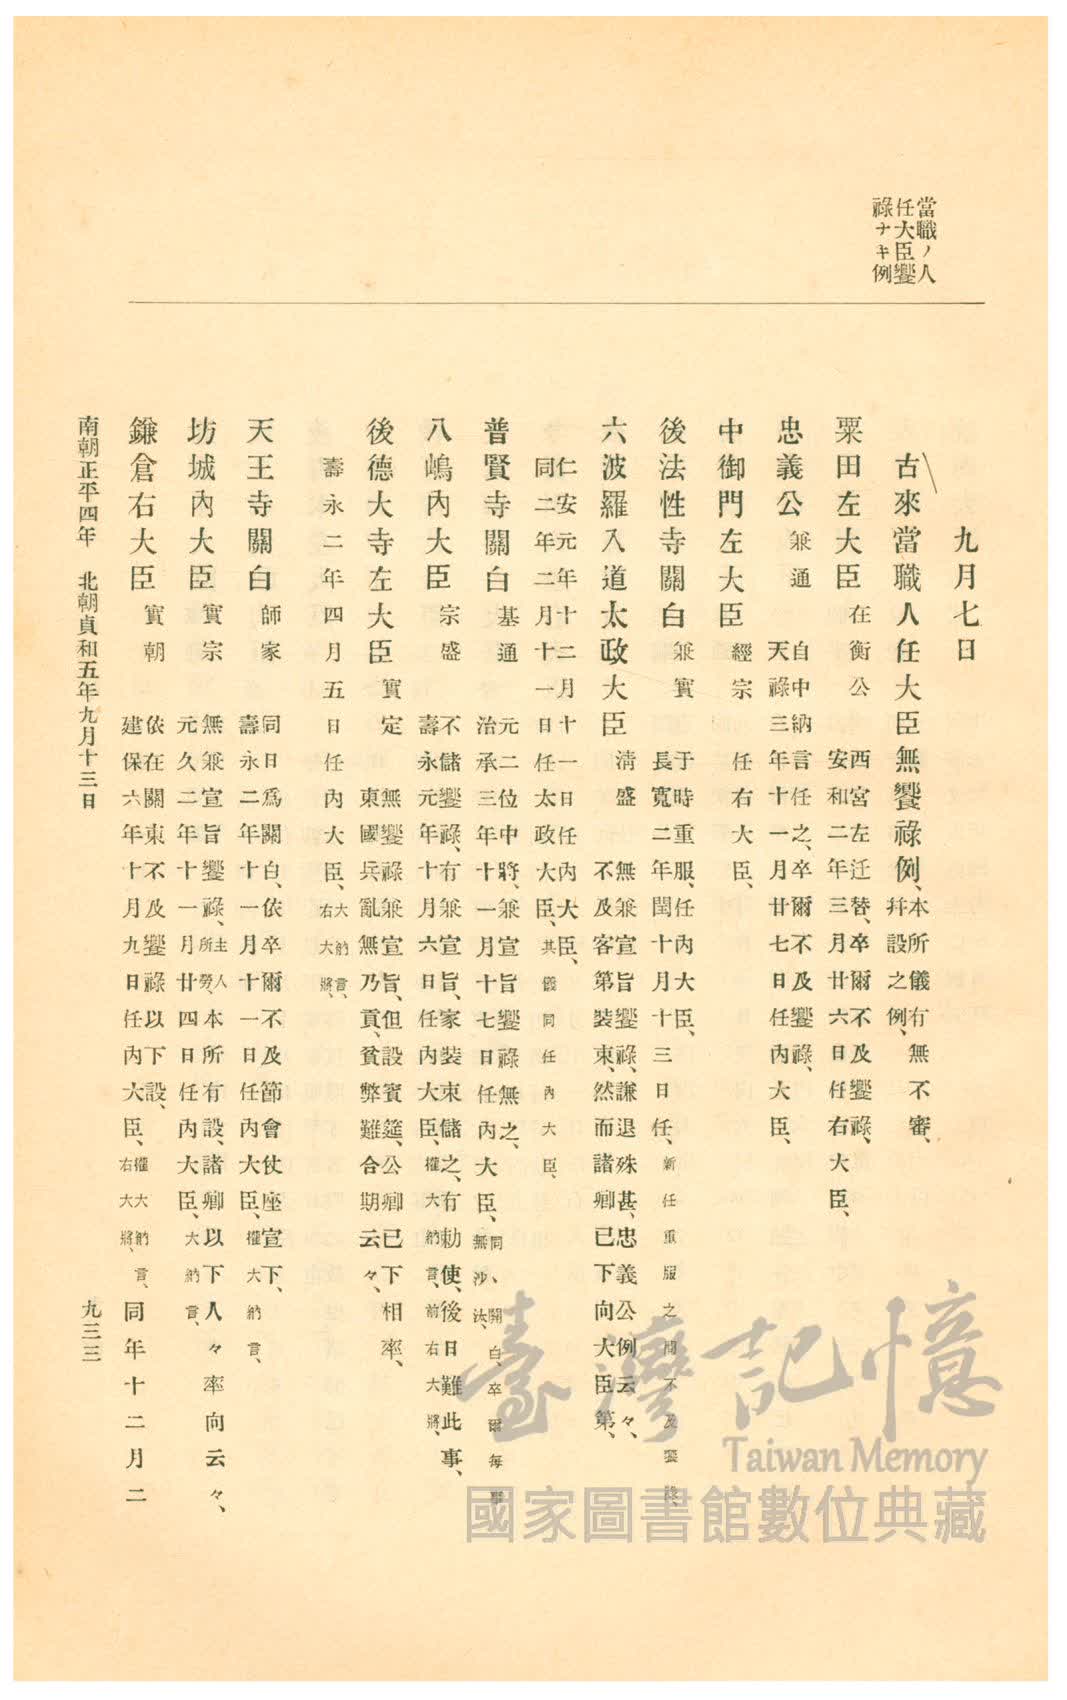 當職ノ人
任大臣饗
祿ナキ例
九月七日
古來當職人任大臣無饗祿例、本所儀有無不審、
幷設之例、
粟田左大臣 在衡公 西宮左迁替、卒爾不及饗祿、
安和二年三月廿六日任右大臣、
忠義公 兼通 自中納言任之、卒爾不及饗祿、
天祿三年十一月廿七日任內大臣、
中御門左大臣 經宗 任右大臣、
後法性寺關白 兼實 于時重服、任內大臣、
長寬二年閏十月十三日任、新任重服之間不及饗祿、
六波羅入道太政大臣 淸盛 無兼宣旨饗祿、謙退殊甚、忠義公例云々、
不及客第裝束、然而諸卿已下向大臣第、
仁安元年十二月十一日任內大臣、
同二年二月十一日任太政大臣、其儀同任內大臣、
普賢寺關白 基通 元二位中將、兼宣旨饗祿無之、
治承三年十一月十七日任內大臣、同、關白、卒爾每事
無沙汰、
八嶋內大臣 宗盛 不儲饗祿、有兼宣旨、家裝束儲之、有勅使、後日難此事、
壽永元年十月六日任內大臣、權大納言、前右大將、
後德大寺左大臣 實定 無饗祿兼宣旨、但設賓筵、公卿已下相率、
東國兵亂無乃貢、貧弊難合期云々、
壽永二年四月五日任內大臣、大納言、
右大將、
天王寺關白 師家 同日爲關白、依卒爾不及節會仗座宣下、
壽永二年十一月十一日任內大臣、權大納言、
坊城內大臣 實宗 無兼宣旨饗祿、主人
所勞、本所有設、諸卿以下人々率向云々、
元久二年十一月廿四日任內大臣、大納言、
鎌倉右大臣 實朝 依在關東不及饗祿以下設、
建保六年十月九日任內大臣、權大納言、
右大將、同年十二月二
南朝正平四年 北朝貞和五年九月十三日 九三三
臺灣記憶
Taiwan Memory
國家圖書館數位典藏